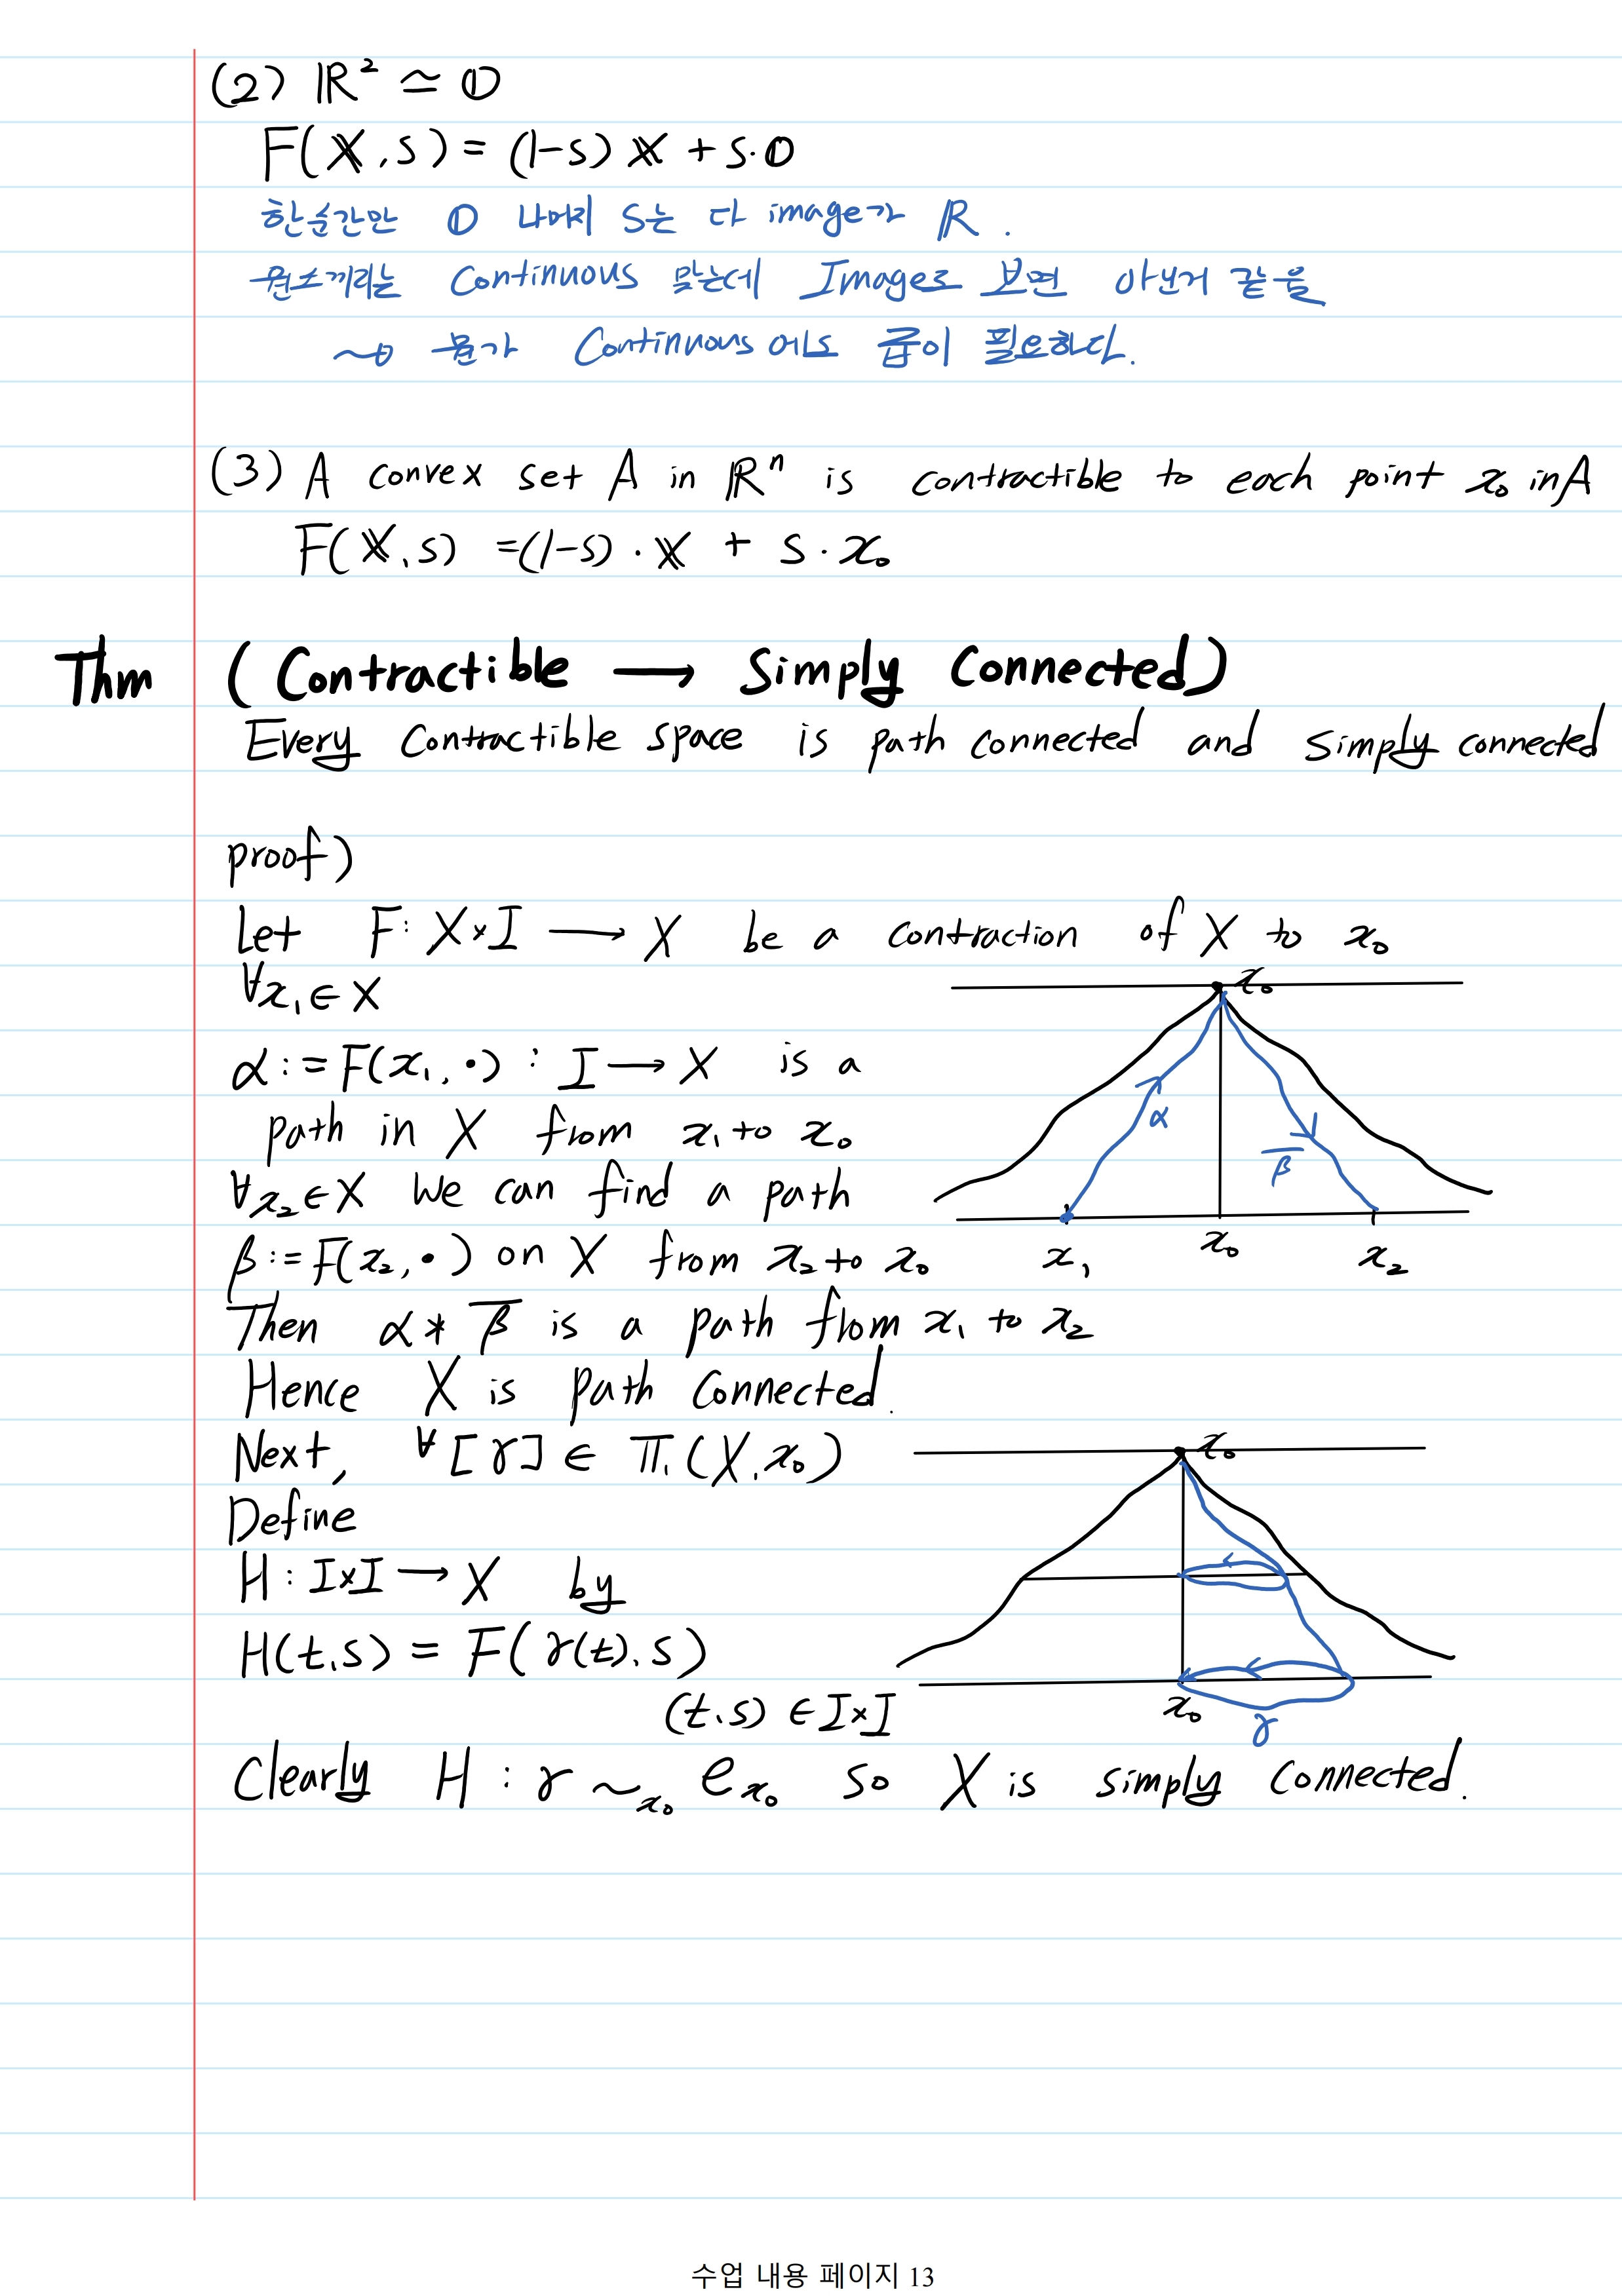 (2) ℝ² ≃ 𝕆
F(𝕏, s) = (1-s) 𝕏 + s·𝕆
한순간만 𝕆 나머지 s는 다 image가 ℝ.
원소끼리는 Continuous 맞는데 Image로 보면 아닌거 같음
~→ 뭔가 Continuous 에도 급이 필요하다.
(3) A convex set A in ℝⁿ is contractible to each point x₀ in A
F(𝕏, s) = (1-s)·𝕏 + s·x₀
Thm (Contractible ⟶ Simply Connected)
Every Contractible space is path connected and simply connected
proof)
Let F: X×I ⟶ X be a contraction of X to x₀
∀x₁ ∈ X
α := F(x₁, •) : I ⟶ X is a
path in X from x₁ to x₀
∀x₂ ∈ X we can find a path
β := F(x₂, •) on X from x₂ to x₀
Then α * β̅ is a path from x₁ to x₂
Hence X is path connected.
x₀
α
β̅
x₁ x₀ x₂
Next, ∀[γ] ∈ π₁(X, x₀)
Define
H : I×I ⟶ X by
H(t, s) = F(γ(t), s)
(t, s) ∈ I×I
x₀
x₀
γ
Clearly H : γ ~ₓ₀ eₓ₀ so X is simply connected.
수업 내용 페이지 13